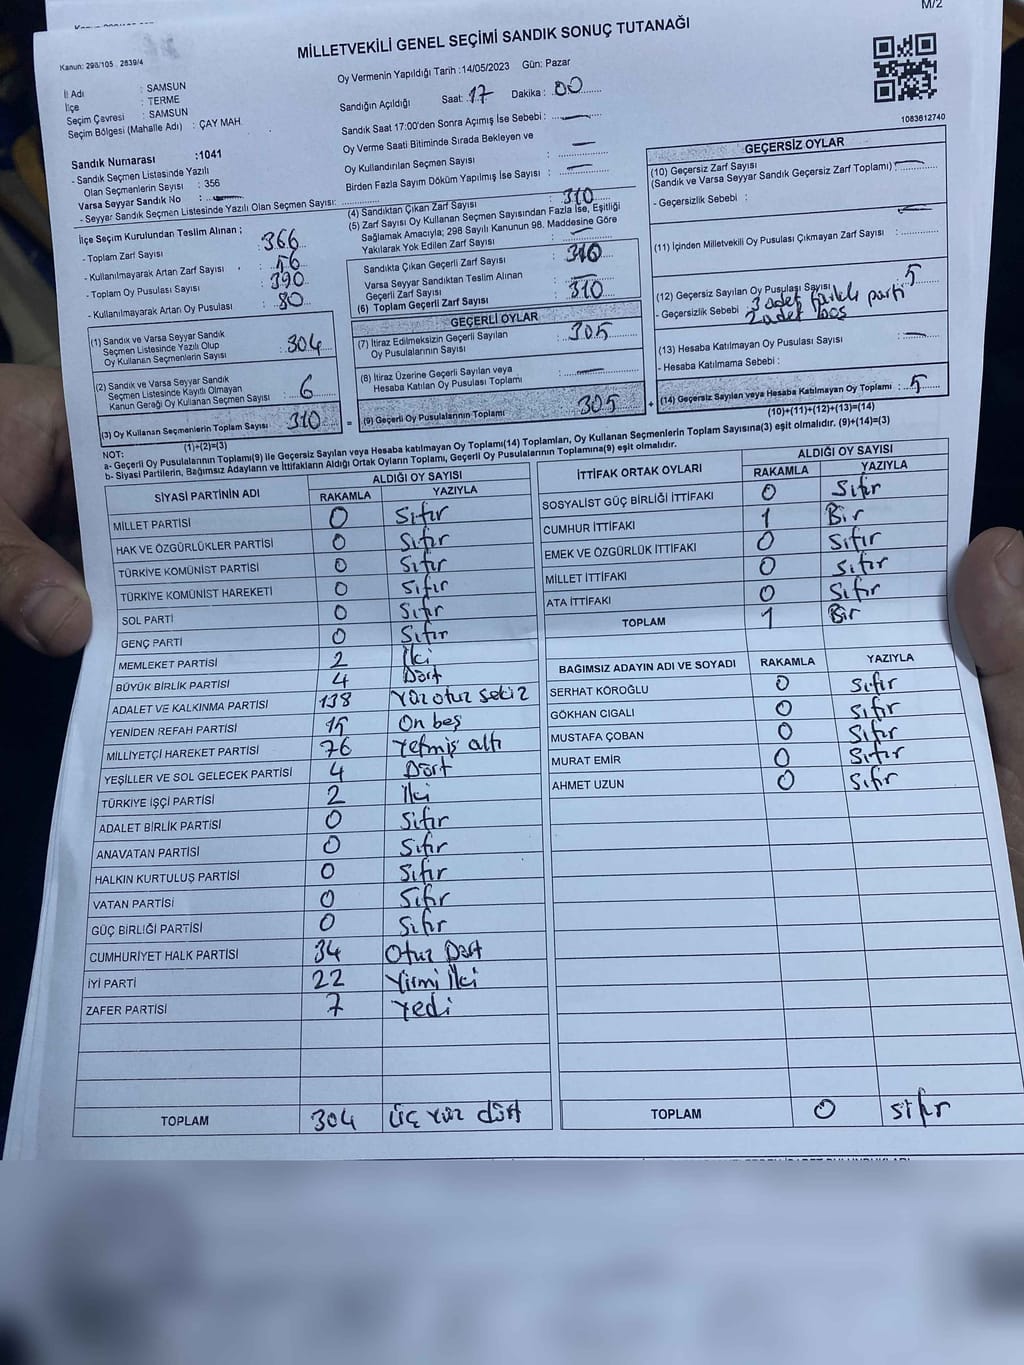 M/2
MİLLETVEKİLİ GENEL SEÇİMİ SANDIK SONUÇ TUTANAĞI
Kanun: 298/105 . 2839/4
Oy Vermenin Yapıldığı Tarih :14/05/2023 Gün: Pazar
İl Adı : SAMSUN
İlçe : TERME
Seçim Çevresi : SAMSUN
Seçim Bölgesi (Mahalle Adı) : ÇAY MAH.
Sandık Numarası :1041
- Sandık Seçmen Listesinde Yazılı
Olan Seçmenlerin Sayısı : 356
Varsa Seyyar Sandık No :
- Seyyar Sandık Seçmen Listesinde Yazılı Olan Seçmen Sayısı:
Sandığın Açıldığı Saat: 17 Dakika : 00
Sandık Saat 17:00'den Sonra Açımış İse Sebebi :
Oy Verme Saati Bitiminde Sırada Bekleyen ve
Oy Kullandırılan Seçmen Sayısı :
Birden Fazla Sayım Döküm Yapılmış İse Sayısı :
1083612740
İlçe Seçim Kurulundan Teslim Alınan ;
- Toplam Zarf Sayısı : 366
- Kullanılmayarak Artan Zarf Sayısı : 56
- Toplam Oy Pusulası Sayısı : 390
- Kullanılmayarak Artan Oy Pusulası : 80
(1) Sandık ve Varsa Seyyar Sandık
Seçmen Listesinde Yazılı Olup
Oy Kullanan Seçmenlerin Sayısı : 304
(2) Sandık ve Varsa Seyyar Sandık
Seçmen Listesinde Kayıtlı Olmayan
Kanun Gereği Oy Kullanan Seçmen Sayısı : 6
(3) Oy Kullanan Seçmenlerin Toplam Sayısı : 310
(1)+(2)=(3)
(4) Sandıktan Çıkan Zarf Sayısı : 310
(5) Zarf Sayısı Oy Kullanan Seçmen Sayısından Fazla İse, Eşitliği
Sağlamak Amacıyla; 298 Sayılı Kanunun 98. Maddesine Göre
Yakılarak Yok Edilen Zarf Sayısı :
Sandıkta Çıkan Geçerli Zarf Sayısı : 310
Varsa Seyyar Sandıktan Teslim Alınan
Geçerli Zarf Sayısı :
(6) Toplam Geçerli Zarf Sayısı : 310
GEÇERLİ OYLAR
(7) İtiraz Edilmeksizin Geçerli Sayılan
Oy Pusulalarının Sayısı : 305
(8) İtiraz Üzerine Geçerli Sayılan veya
Hesaba Katılan Oy Pusulası Toplamı :
= (9) Geçerli Oy Pusulalarının Toplamı : 305
GEÇERSİZ OYLAR
(10) Geçersiz Zarf Sayısı
(Sandık ve Varsa Seyyar Sandık Geçersiz Zarf Toplamı) :
- Geçersizlik Sebebi :
(11) İçinden Milletvekili Oy Pusulası Çıkmayan Zarf Sayısı :
(12) Geçersiz Sayılan Oy Pusulası Sayısı : 5
- Geçersizlik Sebebi 3 adet farklı parti
2 adet boş
(13) Hesaba Katılmayan Oy Pusulası Sayısı :
- Hesaba Katılmama Sebebi :
+ (14) Geçersiz Sayılan veya Hesaba Katılmayan Oy Toplamı : 5
(10)+(11)+(12)+(13)=(14)
NOT:
a- Geçerli Oy Pusulalarının Toplamı(9) ile Geçersiz Sayılan veya Hesaba katılmayan Oy Toplamı(14) Toplamları, Oy Kullanan Seçmenlerin Toplam Sayısına(3) eşit olmalıdır. (9)+(14)=(3)
b- Siyasi Partilerin, Bağımsız Adayların ve İttifakların Aldığı Ortak Oyların Toplamı, Geçerli Oy Pusulalarının Toplamına(9) eşit olmalıdır.
SİYASİ PARTİNİN ADI ALDIĞI OY SAYISI
RAKAMLA YAZIYLA
MİLLET PARTİSİ 0 Sıfır
HAK VE ÖZGÜRLÜKLER PARTİSİ 0 Sıfır
TÜRKİYE KOMÜNİST PARTİSİ 0 Sıfır
TÜRKİYE KOMÜNİST HAREKETİ 0 Sıfır
SOL PARTİ 0 Sıfır
GENÇ PARTİ 0 Sıfır
MEMLEKET PARTİSİ 2 İki
BÜYÜK BİRLİK PARTİSİ 4 Dört
ADALET VE KALKINMA PARTİSİ 138 Yüz otuz sekiz
YENİDEN REFAH PARTİSİ 15 On beş
MİLLİYETÇİ HAREKET PARTİSİ 76 Yetmiş altı
YEŞİLLER VE SOL GELECEK PARTİSİ 4 Dört
TÜRKİYE İŞÇİ PARTİSİ 2 İki
ADALET BİRLİK PARTİSİ 0 Sıfır
ANAVATAN PARTİSİ 0 Sıfır
HALKIN KURTULUŞ PARTİSİ 0 Sıfır
VATAN PARTİSİ 0 Sıfır
GÜÇ BİRLİĞİ PARTİSİ 0 Sıfır
CUMHURİYET HALK PARTİSİ 34 Otuz Dört
İYİ PARTİ 22 Yirmi İki
ZAFER PARTİSİ 7 Yedi
TOPLAM 304 Üç Yüz dört
İTTİFAK ORTAK OYLARI ALDIĞI OY SAYISI
RAKAMLA YAZIYLA
SOSYALİST GÜÇ BİRLİĞİ İTTİFAKI 0 Sıfır
CUMHUR İTTİFAKI 1 Bir
EMEK VE ÖZGÜRLÜK İTTİFAKI 0 Sıfır
MİLLET İTTİFAKI 0 Sıfır
ATA İTTİFAKI 0 Sıfır
TOPLAM 1 Bir
BAĞIMSIZ ADAYIN ADI VE SOYADI RAKAMLA YAZIYLA
SERHAT KÖROĞLU 0 Sıfır
GÖKHAN CIGALI 0 Sıfır
MUSTAFA ÇOBAN 0 Sıfır
MURAT EMİR 0 Sıfır
AHMET UZUN 0 Sıfır
TOPLAM 0 Sıfır